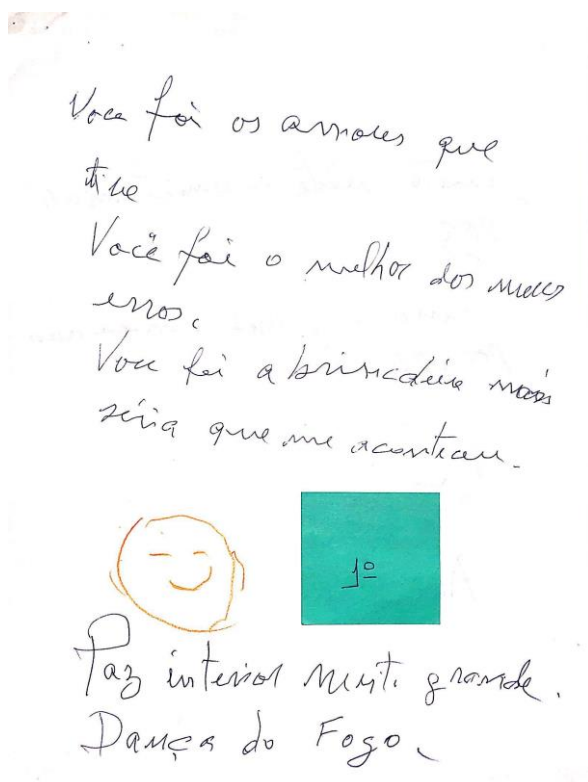 Voce foi os amores que
tive
Você foi o melhor dos meus
erros.
Voce foi a brincadeira mais
séria que me aconteceu.
1º
Paz interior muito grande.
Dança do Fogo.